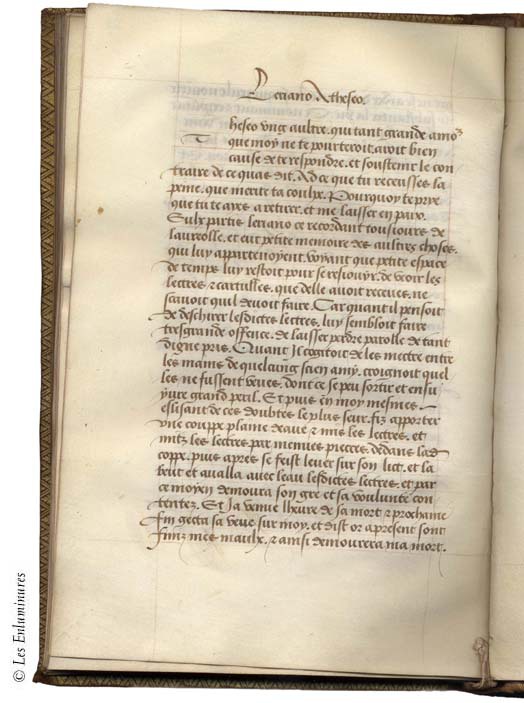 Leriano A theseo.
heseo ung aultre, qui tant grande amor
T que moy ne te pourteroit, avoit bien
cause de te respondre, et soustenir le con
traire de ce quas dit. Ad ce que tu recenses la
peine, que merite ta coulpe. Pourquoy te prye
que tu te ayes a retirer, et me laisser en paix.
Sulx partis leriano ce recordant tousiours de
laureolle, et eut petite memoire des aultres choses.
qui luy appartenoyent, voyant que petite espace
de temps luy restoit pour se resiouyr, de veoir les
lettres & cartulles, que delle avoit receues, ne
scavoit quil devoit faire. Car quant il pensoit
de deschirer lesdictes lettres, luy sembloit faire
tresgrande offence, de laisser perdre parolle de tant
digne pris. Quant Il cogitoit de les mectre entre
les mains de quelcung sien amy, croignoit quel
les ne fussent veues, dont ce peu sortir et ensu
yvre grand peril. Et puis en moy mesmes
eslisant de ces doubtes le plus seur, fiz apporter
une couppe plaine deaue & mis les lectres, et
mitz les lectres, par menues pieces, dedans lad
coppe, puis apres se feist lever sur son lict, et la
beut et avalla avec leau lesdictes lectres, et par
ce moyen demoura son gre et sa voulunte con
tentez. Et Ja venue lheure de sa mort & prochaine
fin gecta sa veue sur moy, et dist or apresent sont
finiz mes maulx, & ainsi demourera ma mort.
© Les Enluminures